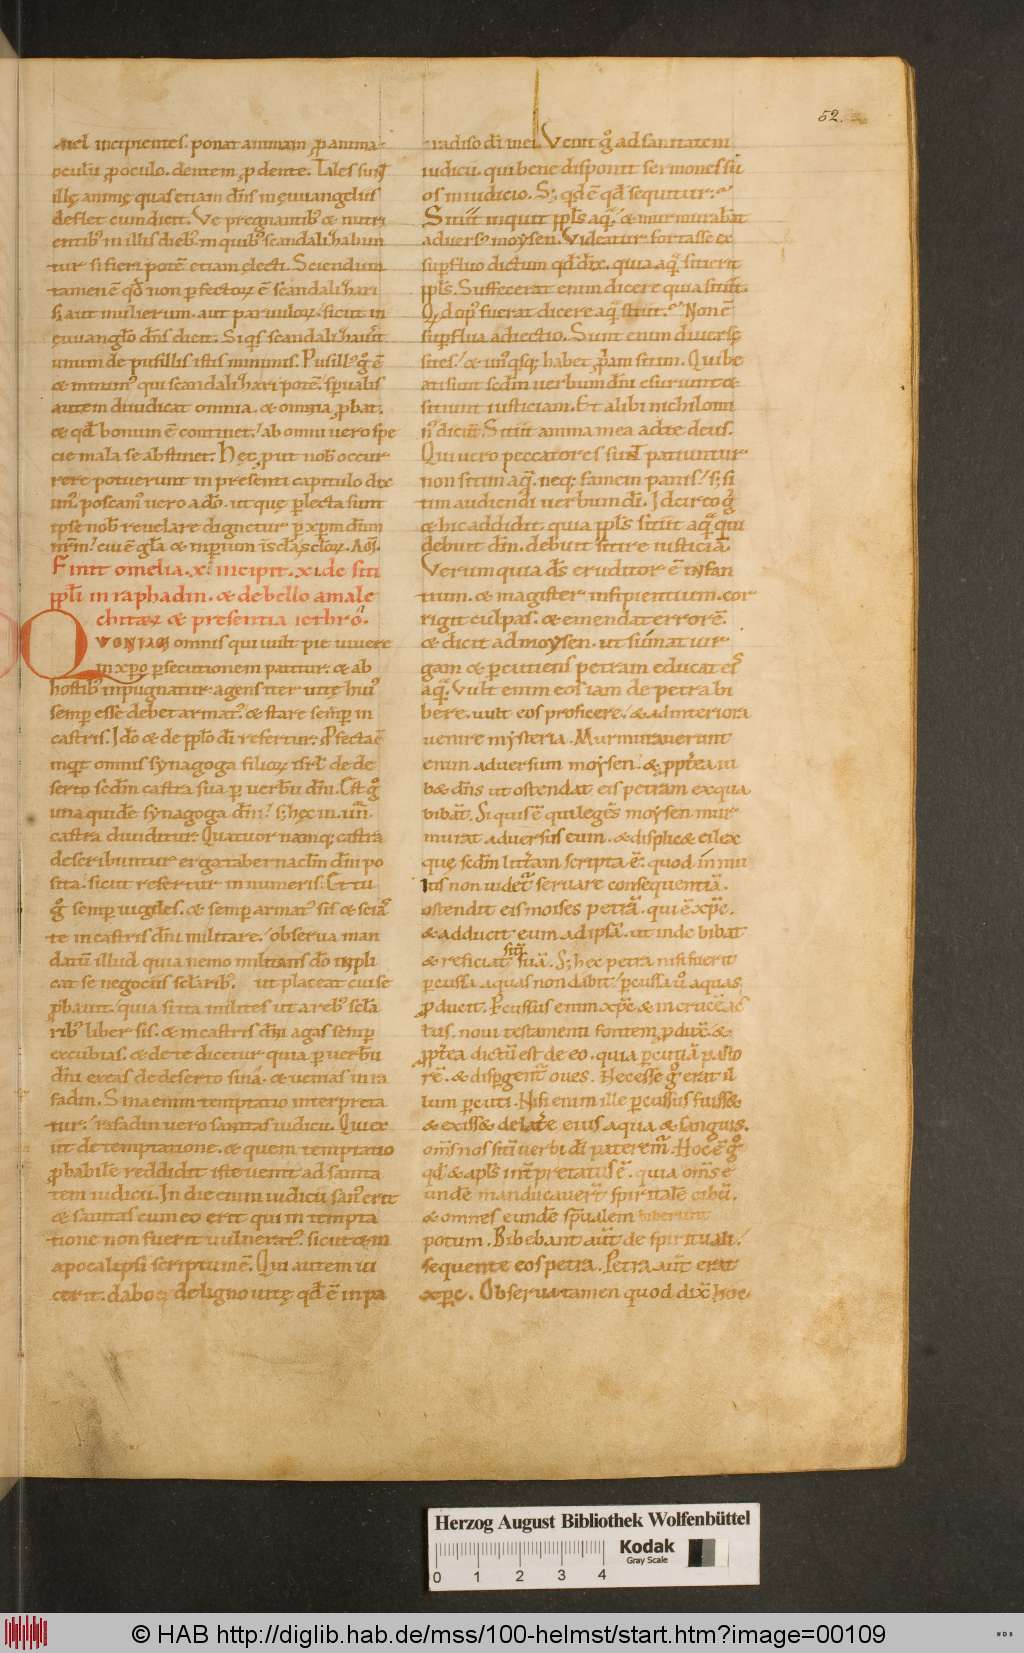 52.
uel incipientes. ponat animam p anima.
oculũ p oculo. dentem p dente. Tales sunt
illę animę quas etiam dñs in ęuuangeliis
deflet cum dicit. Ve pregnantib; & nutri
entib; in illis dieb; in quib; scandalizabun
tur si fieri potẽ etiam electi. Sciendum
tamen ẽ qđ non perfectoꝝ ẽ scandalizari
s; aut mulierum. aut paruuloꝝ. sicut in
ęuuanglo dñs dicit. Siqs scandalizauit
unum de pusillis istis minimis. Pusillus gͦ ẽ
& minimus qui scandalizari potẽ. spualis
autem diiudicat omnia. & omnia pbat.
& qđ bonum ẽ continet. ab omni uero spe
cie mala se abstinet. Hęc put nob occur
rere potuerunt in presenti capitulo dix
imus. poscamus uero a dõ. ut quę plecta sunt
ipse nob reuelare dignetur p xpm dñm
nrm. cui ẽ gła & imperium in sclã scloꝝ. Am̃.
Finit omelia. x. incipit. xi. de siti
ppli in raphadin. & de bello amale
chitaꝝ & presentia iethro.
QVONIAM omnis qui uult pie uiuere
in xpo psecutionem patitur. & ab
hostib; inpugnatur agens iter uitę huius
semp esse debet armatus. & stare semp in
castris. Ido & de pplo di refertur. Pfecta ẽ
inquit omnis synagoga filioꝝ isrl de de
serto scdm castra sua p uerbũ dñi. Est gͦ
una quidẽ synagoga dñi. s; hęc in .IIII.
castra diuiditur. Quatuor namq; castra
describuntur erga tabernaclm dñi po
sita. sicut refertur in numeris. Et tu
gͦ semp uigiles. & semp armatus sis & sciãs
te in castris dñi militare. obserua man
datũ illud quia nemo militans dõ inpli
cat se negociis sclarib; ut placeat cui se
pbauit. quia si ita milites ut a reb; scla
rib; liber sis. & in castris dñi agas semp
excubias. & de te dicetur quia p uerbũ
dñi exeas de deserto sina. & uenias in ra
fadin. Sina enim temptatio interpreta
tur. rafadin uero sanitas iudicii. Qui ex
iit de temptatione. & quem temptatio
pbabile reddidit iste uenit ad sanita
tem iudicii. In die enim iudicii sanus erit
& sanitas cum eo erit qui in tempta
tione non fuerit uulneratus. sicut & in
apocalipsi scriptum ẽ. Qui autem ui
cerit. dabo ei de ligno uitę qđ ẽ in pa
radiso di mei. Venit gͦ ad sanitatem
iudicii. qui bene disponit sermones su
os in iudicio. S; qd ẽ qđ sequitur.
Sitiit inquit ppls aquã. & murmurabat
aduersus moysen. Videatur fortasse ex
supfluo dictum qđ dix. quia aquã sitierit
ppls. Suffecerat enim dicere quia sitiit.
Qd opus fuerat dicere aquã sitiit. Non ẽ
supflua adiectio. Sunt enim diuersę
sites. & unusqsq; habet ppriam sitim. Qui be
ati sunt scdm uerbum dñi esuriunt &
sitiunt iusticiam. Et alibi nichilomi
nus dicunt. Sitiit anima mea ad te deus.
Qui uero peccatores sunt patiuntur
non sitim aquę. neq; famem panis. s; si
tim audiendi uerbum di. Idcirco gͦ
& hic addidit. quia ppls sitiit aquã qui
debuit dñm. debuit sitire iusticiã.
Verum quia ds eruditor ẽ infan
tium. & magister insipientium. cor
rigit culpas. & emendat errorẽ.
& dicit ad moysen. ut sumat uir
gam & pcutiens petram educat eis
aquã. Vult enim eos iam de petra bi
bere. uult eos proficere. & ad interiora
uenire mysteria. Murmurauerunt
enim aduersum moysen. & pptea iu
b& dñs ut ostendat eis petram ex qua
bibãt. Si quis ẽ qui legẽs moysen mur
murat aduersus eum. & displic& ei lex
quę scdm litteram scripta ẽ. quod in mul
tis non uidetur seruare consequentiã.
ostendit eis moises petrã. qui ẽ xpc.
& adducit eum ad ipsã. ut inde bibat
& reficiat sitĩ suã. S; hec petra nisi fuerit
percussa. aquas non dabit. percussa uero aquas
pducit. Pcussus enim xpc & in crucẽ ac
tus. noui testamenti fontem pdux. &
pptea dictũ est de eo. quia pcutiã pasto
rẽ. & dispgentur oues. Necesse gͦ erat il
lum pcuti. Nisi enim ille percussus fuiss&
& exiss& de latere eius aqua & sanguis.
oms nos sitĩ uerbi di pateremur. Hoc ẽ gͦ
qđ & apls intpretatus ẽ. quia oms e
undẽ manducauerunt spiritalẽ cibũ.
& omnes eundẽ spualem biberunt
potum. Bibebant aut de spirituali
sequente eos petra. Petra aut erat
xpc. Obserua tamen quod dix hoc
Herzog August Bibliothek Wolfenbüttel
0 1 2 3 4
Kodak
Gray Scale
© HAB http://diglib.hab.de/mss/100-helmst/start.htm?image=00109